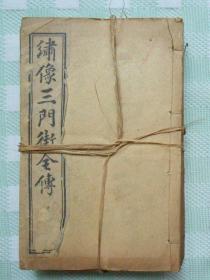 繡像三門街全傳